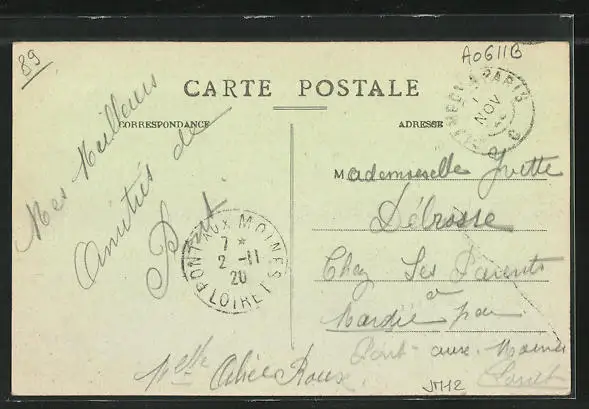 89
A0611B
CARTE POSTALE
CORRESPONDANCE
ADRESSE
PARIS
NOV
Mes Meilleurs
Amitiés de
PONT AUX MOINES
7 *
2 -11
20
LOIRET
Mademoiselle Yvette
Délrosse
Chez Ses Parents
à
Mardié par
Pont-aux-Moines
Loiret
Melle Roux
JM12